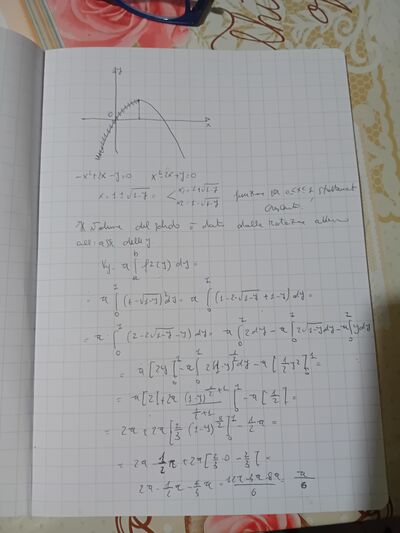 y
0
x
-x²+2x-y=0 x²-2x+y=0
x=1±√1-y = x1=1+√1-y
x2=1-√1-y
funzione per 0≤x≤1 strettament
crescente
Il Volume del solido è dato dalla rotazione attorno
all'asse delle y
Vy= π∫ f²(y) dy=
= π∫ (1-√1-y)² dy= π∫ (1-2√1-y+1-y)dy=
= π∫ (2-2√1-y-y)dy= π∫ 2dy-π∫ 2√1-y dy-π∫ y dy
= π[2y] -π∫ 2(1-y)^½ dy-π[½y²] =
= π[2]+2π (1-y)^½+1 / ½+1 -π[½]=
= 2π+2π[⅔ (1-y)^3/2] -½π=
= 2π-½π+2π[⅔·0-⅔]=
2π-½π-4/3π= 12π-3π-8π / 6 = π/6